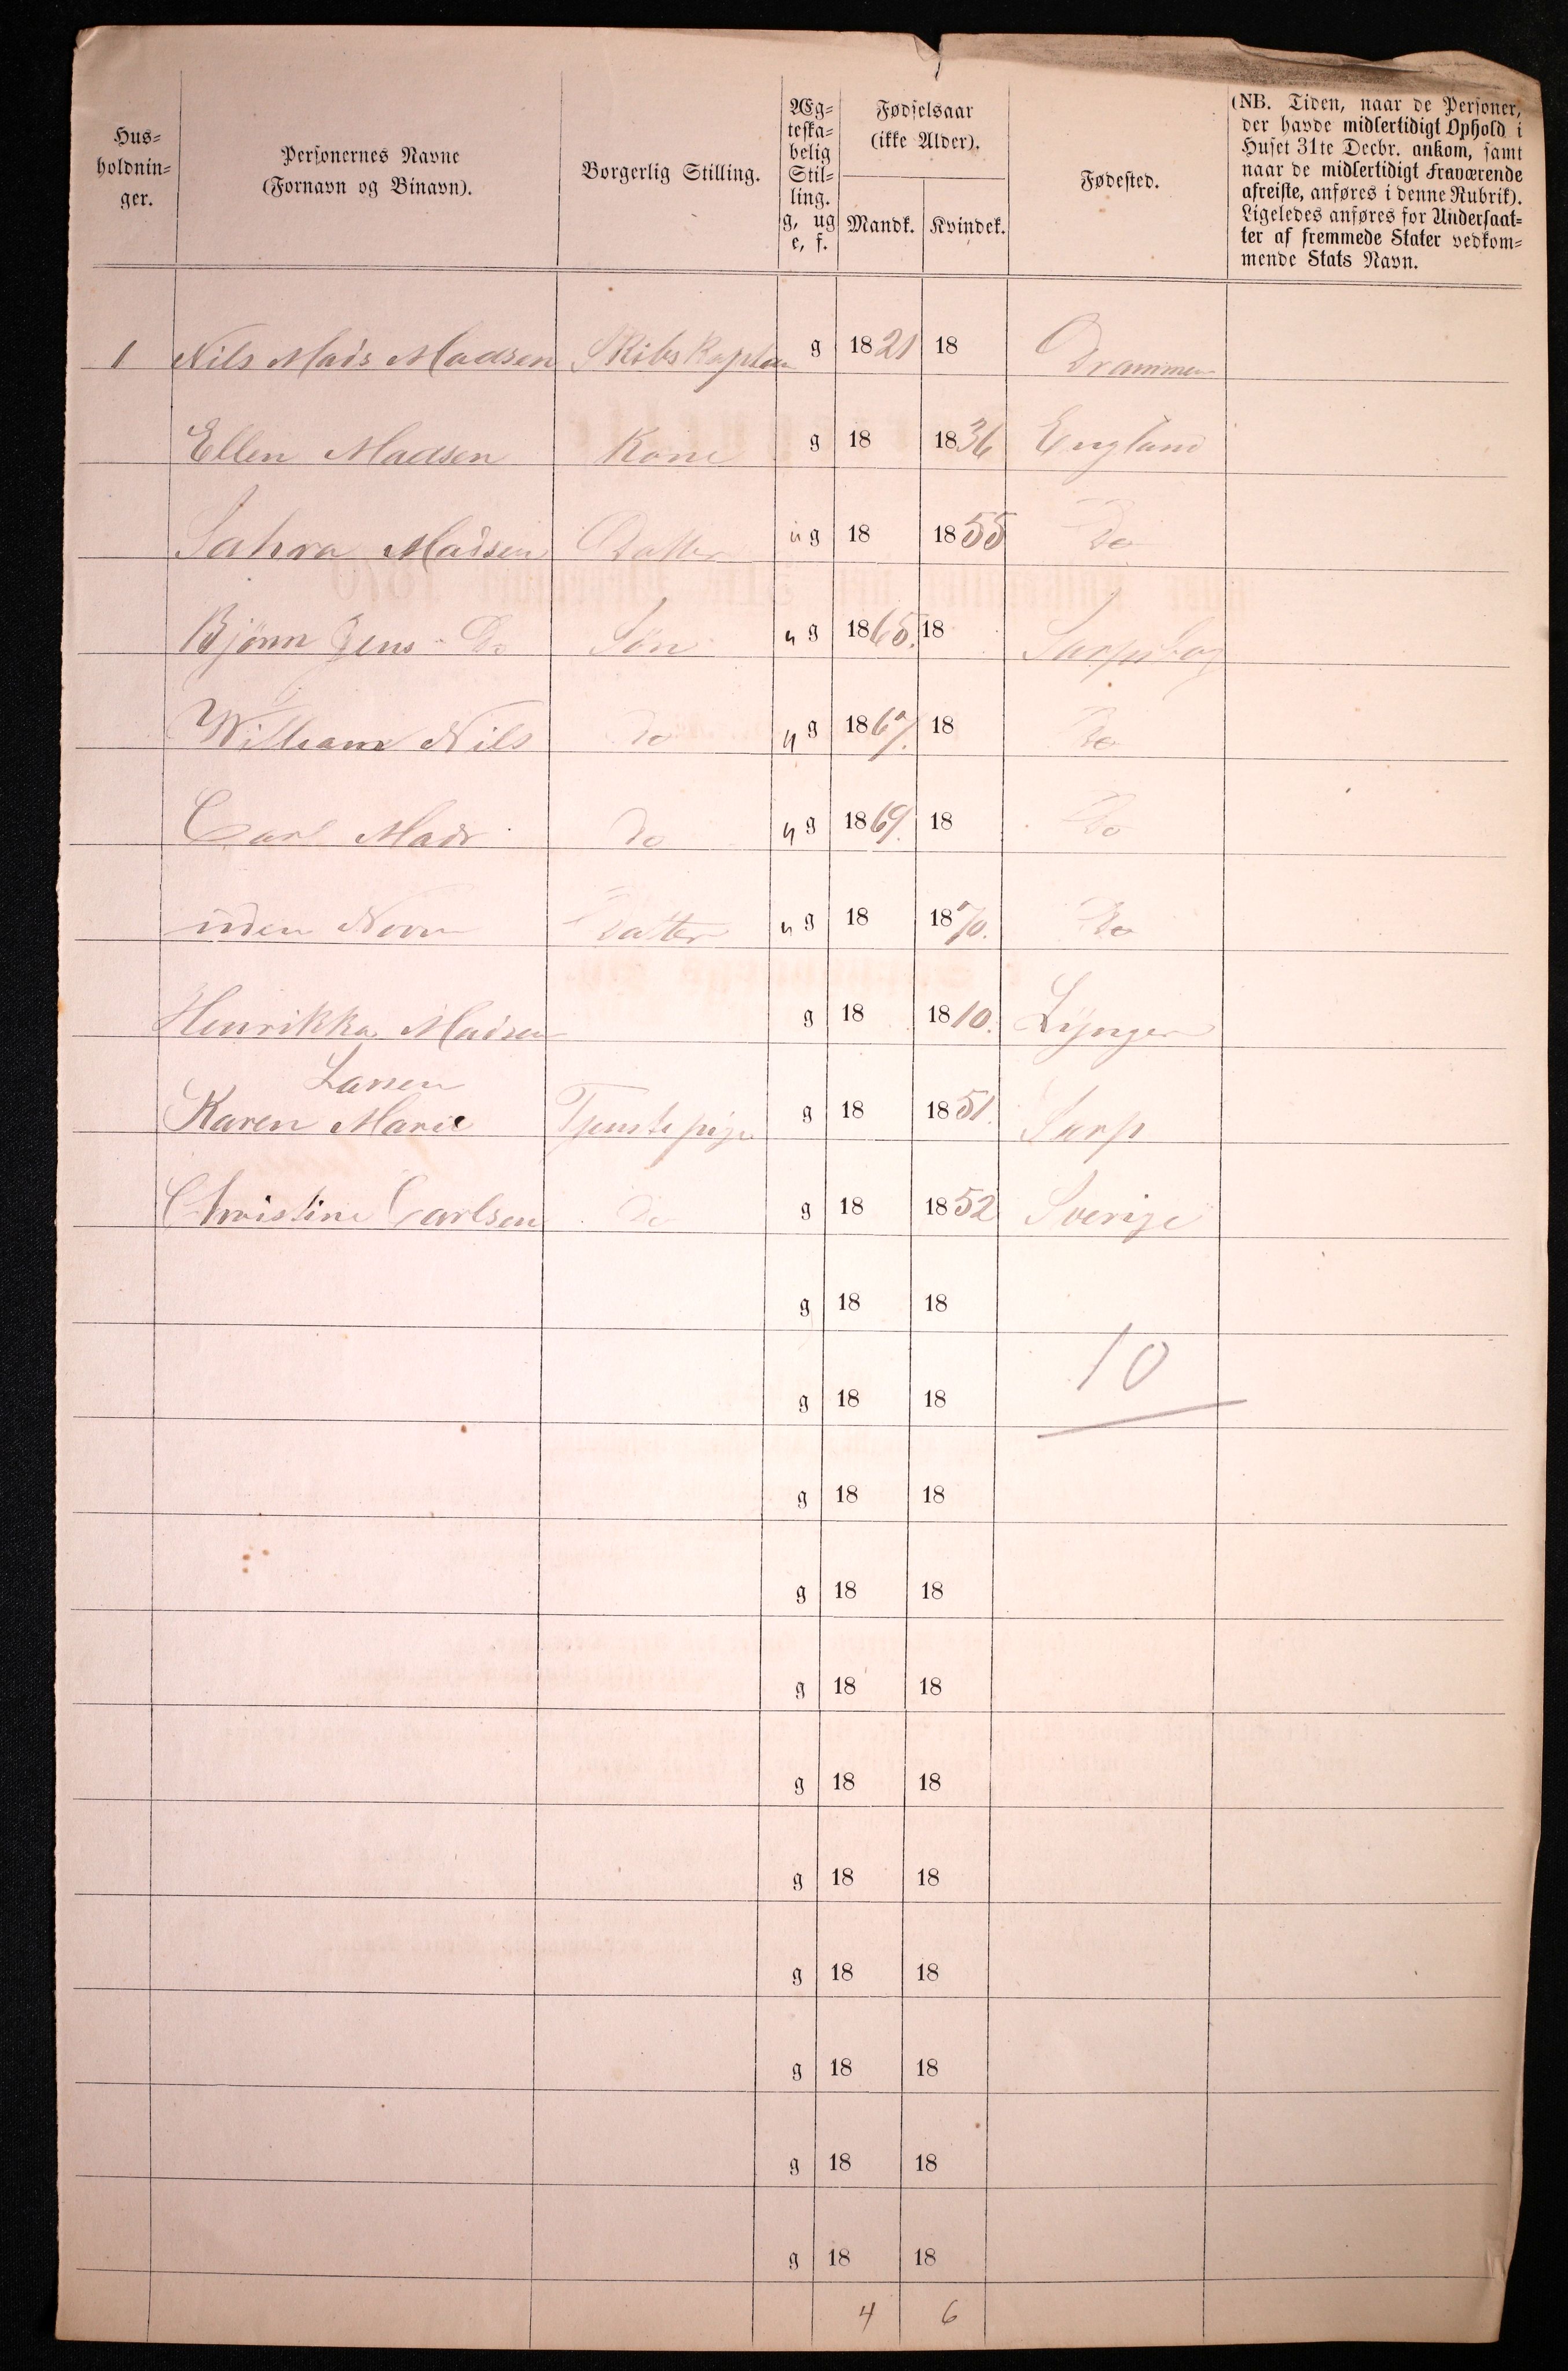 Hus-
holdnin-
ger.
Personernes Navne
(Fornavn og Binavn).
Borgerlig Stilling.
Æg-
teska-
belig
Stil-
ling.
g, ug
e, f.
Fødselsaar
(ikke Alder).
Mandk. Kvindek.
Fødested.
(NB. Tiden, naar de Personer,
der havde midlertidigt Ophold i
Huset 31te Decbr. ankom, samt
naar de midlertidigt Fraværende
afreiste, anføres i denne Rubrik).
Ligeledes anføres for Undersaat-
ter af fremmede Stater vedkom-
mende Stats Navn.
1 Nils Mads Madsen Skibskaptein g 1821 18 Drammen
Ellen Madsen Kone g 18 1836 England
Sahra Madsen Datter ug 18 1855 Do
Bjönn Jens Do Sön ug 1865. 18 Sarpsborg
William Nils Do ug 1867. 18 Do
Carl Mads Do ug 1869. 18 Do
uden Navn Datter ug 18 1870. Do
Henrikka Madsen g 18 1810. Lÿngør
Larsen
Karen Marie Tjenstepige g 18 1851. Sarp
Christine Carlsen Do g 18 1852 Sverige
g 18 18
g 18 18 10
g 18 18
g 18 18
g 18 18
g 18 18
g 18 18
g 18 18
g 18 18
g 18 18
g 18 18
4 6